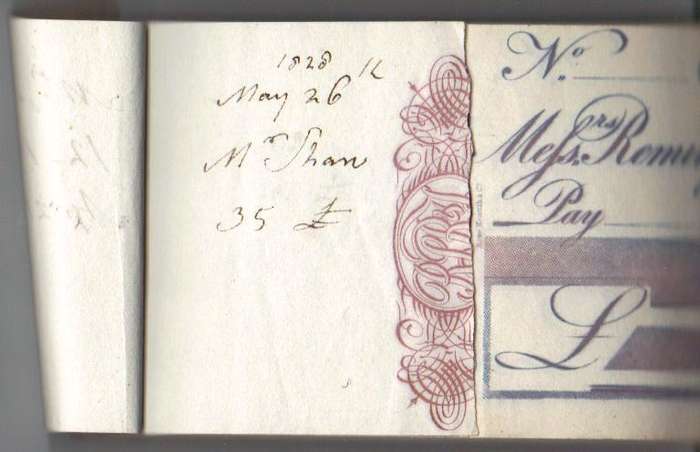 1828
May 26th
Mr Shaw
35 £
No.
Messrs Romu
Pay
£